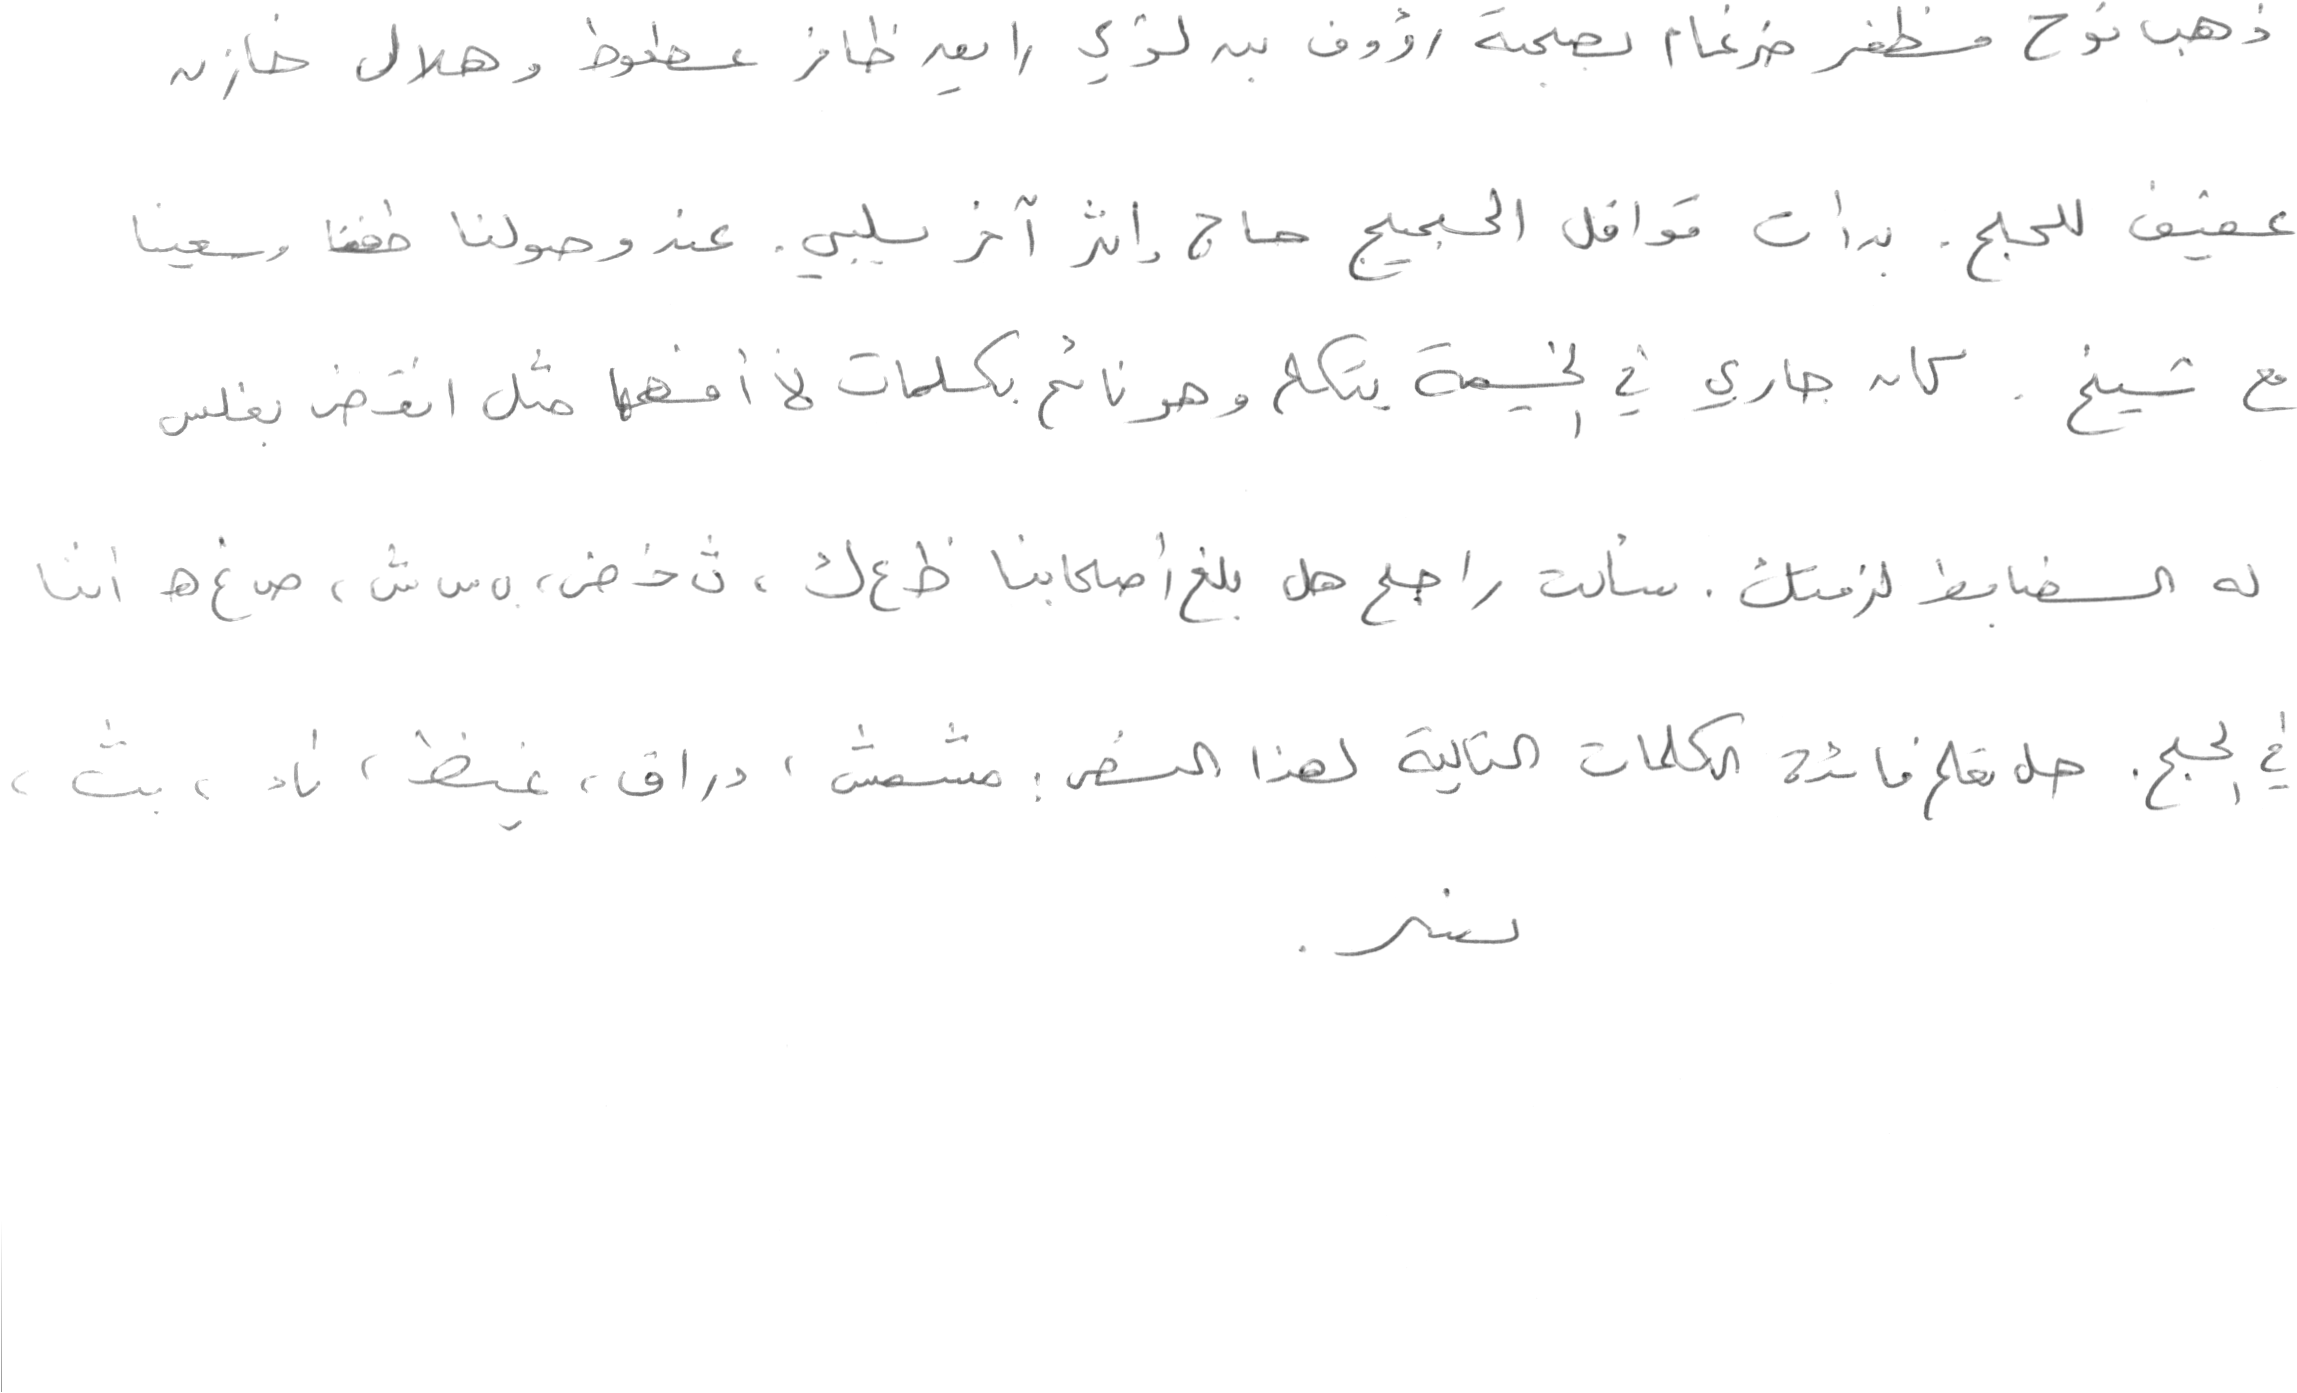 ذهب نوح مظفر ضرغام بصحبة رؤوف بن لؤي رايعد ظافر عطعوط وهلال خازن
عفيف للحج. بدأت قوافل الحجيج حاج إثر آخر يلبي. عند وصولنا طفنا وسعينا
مع شيخ. كان جاري في الخيمة يتكلم وهو نائم بكلمات لا أفهمها مثل انقض بغلس
له الضابط لزمتك. سألت راجح هل بلغ أصحابنا ظ ع ك، ث خ ض، ب س ش، ص غ ه أننا
في الحج. هل تعلم فائدة الكلمات التالية لهذا النص: مشمش، دراق، غيظ، ثاد، بث،
نسر.